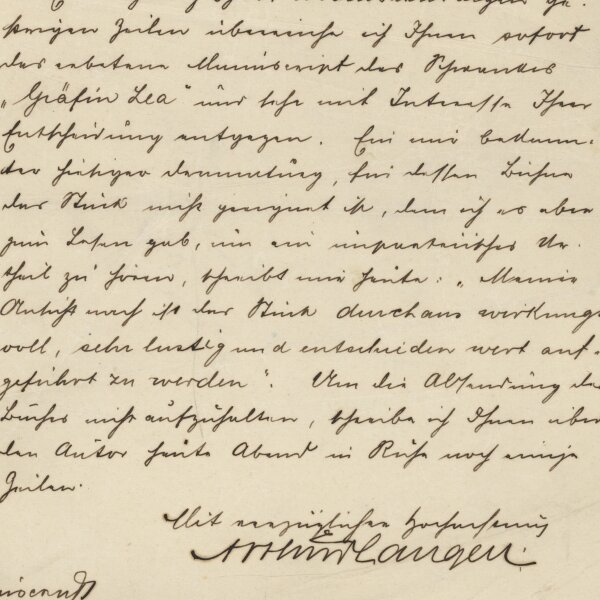 strigen Zeilen überreiche ich Ihnen sofort
das erbetene Manuscript des Schwankes
„Gräfin Lea“ und sehe mit Interesse Ihrer
Entscheidung entgegen. Ein mir bekann-
ter hiesiger Dramaturg, für dessen Bühne
das Stück nicht geeignet ist, dem ich es aber
zum Lesen gab, um ein unparteiisches Ur-
theil zu hören, schreibt mir heute: „Meiner
Ansicht nach ist das Stück durchaus wirkungs-
voll, sehr lustig und entschieden wert auf-
geführt zu werden“. Um die Absendung des
Buches nicht aufzuhalten, schreibe ich Ihnen über
den Autor heute Abend in Ruhe noch einige
Zeilen.
Mit vorzüglicher Hochachtung
Arthur Langen.